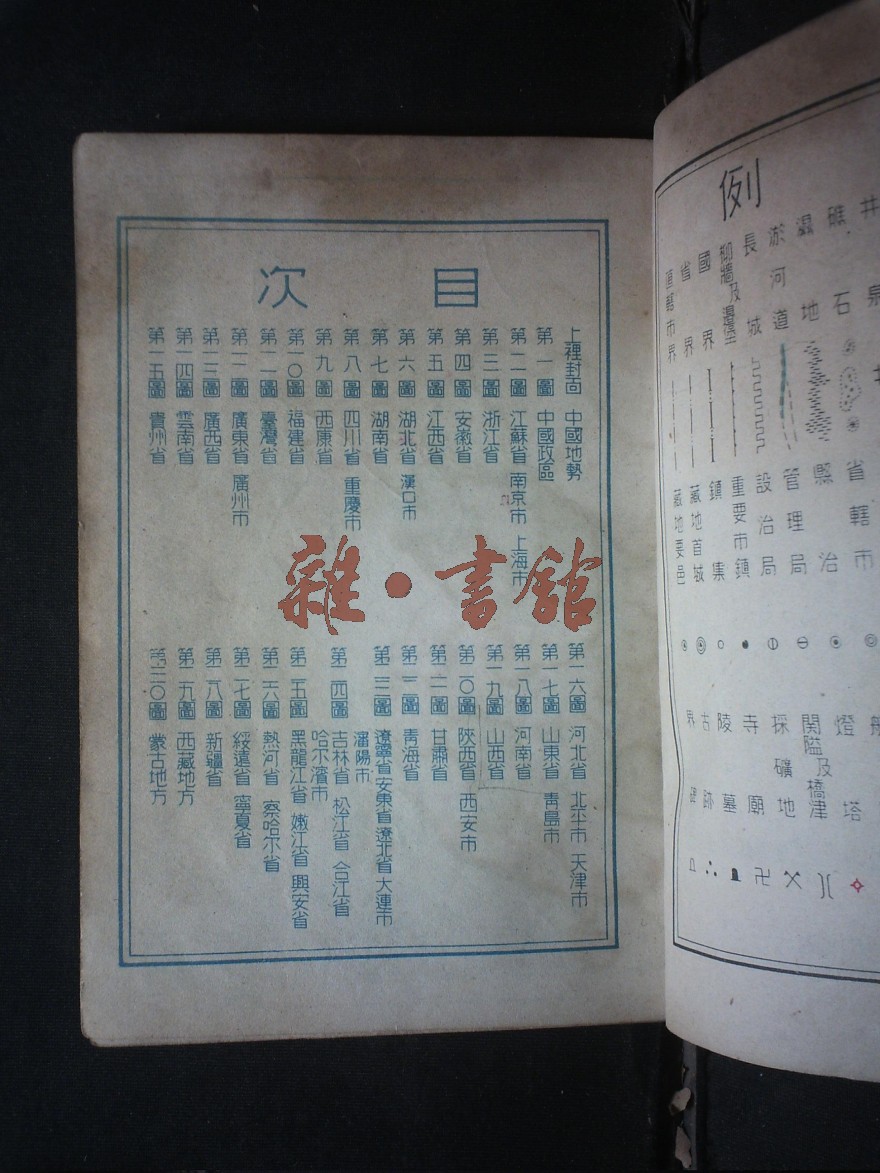 目 次
上裡封面 中國地勢
第一圖 中國政區
第二圖 江蘇省 南京市 上海市
第三圖 浙江省
第四圖 安徽省
第五圖 江西省
第六圖 湖北省 漢口市
第七圖 湖南省
第八圖 四川省 重慶市
第九圖 西康省
第一〇圖 福建省
第一一圖 臺灣省
第一二圖 廣東省 廣州市
第一三圖 廣西省
第一四圖 雲南省
第一五圖 貴州省
第一六圖 河北省 北平市 天津市
第一七圖 山東省 青島市
第一八圖 河南省
第一九圖 山西省
第二〇圖 陝西省 西安市
第二一圖 甘肅省
第二二圖 青海省
第二三圖 遼寧省 安東省 遼北省 大連市
瀋陽市
第二四圖 吉林省 松江省 合江省
哈尔濱市
第二五圖 黑龍江省 嫩江省 興安省
第二六圖 熱河省 察哈尔省
第二七圖 綏遠省 寧夏省
第二八圖 新疆省
第二九圖 西藏地方
第三〇圖 蒙古地方
雜·書館
例
井 泉
礁 石
濕 地
淤河道
長城
柳牆及邊堡
國界
省界
直轄市界
省轄市
縣治
管理局
設治局
重要市鎮
鎮集
藏地首城
藏地要邑
燈塔
関隘及橋津
採礦地
寺廟
陵墓
古跡
界碑